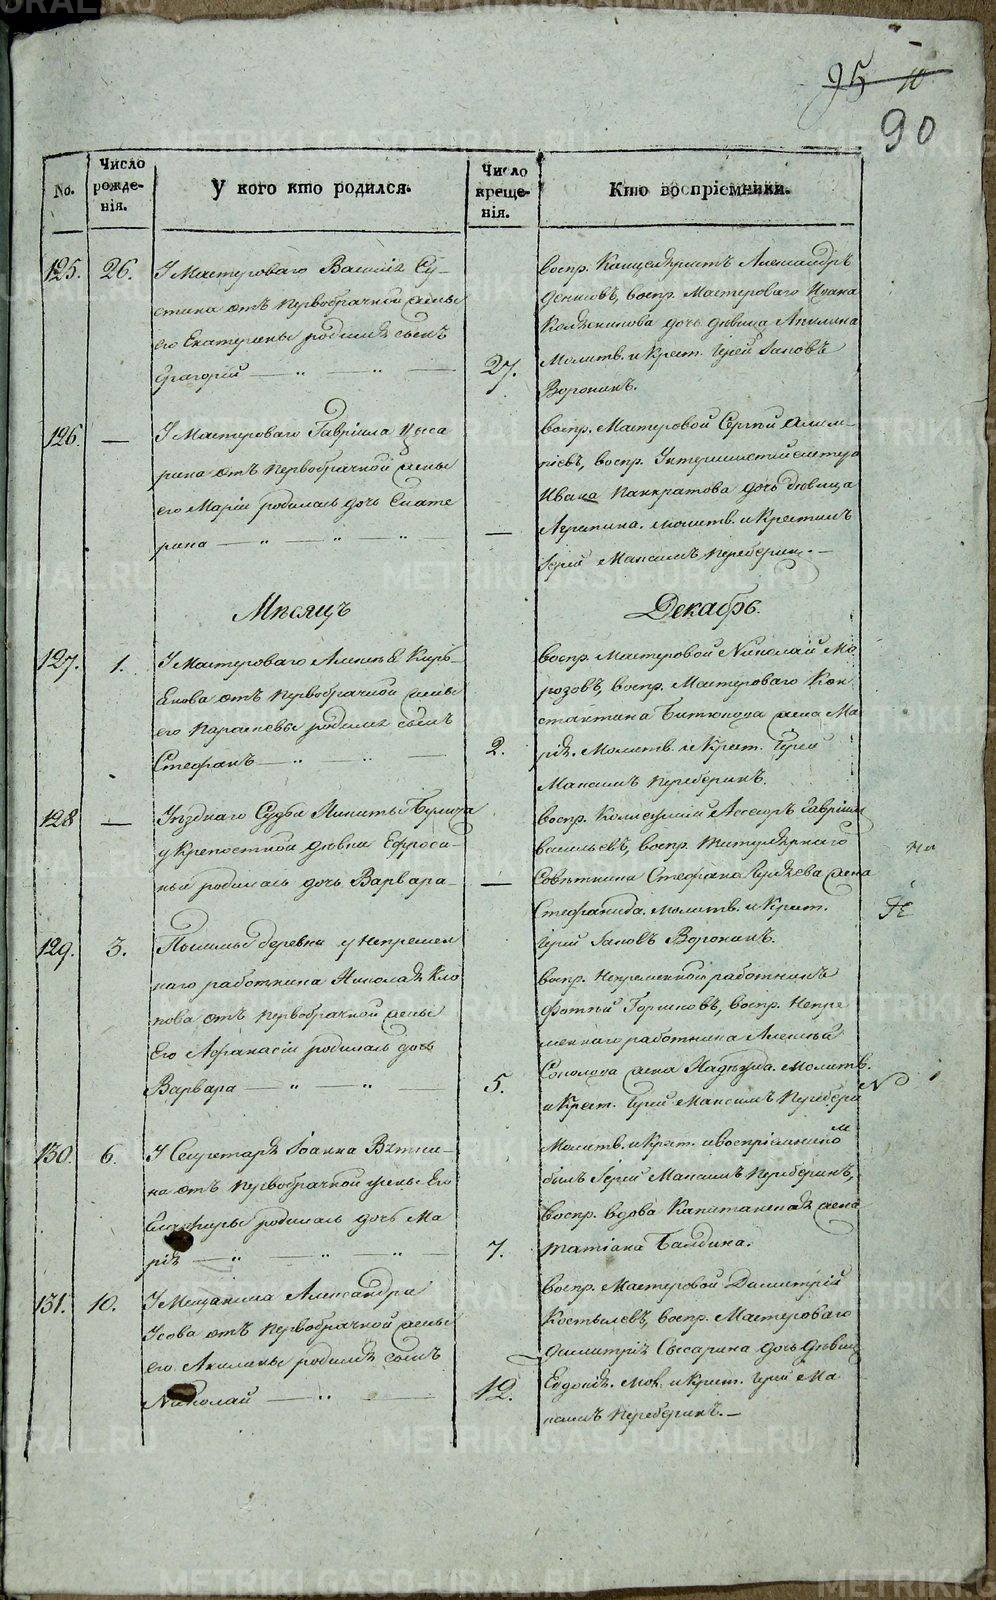 95 10
90
No.
Число рожде- нія.
У кого кто родился.
Число креще- нія.
Кто воспріемники.
125. 26. У Мастероваго Василія Су-
стина отъ первобрачной жены
его Екатерины родился сынъ
Григорій
27.
воспр. Канцеляристъ Александръ
Денисовъ, воспр. Мастероваго Иоана
дочь девица Акилина
Молитв. и Крест. Іерей Іаковъ
Воронинъ.
126. — У Мастероваго Гавріила Цыса
рина отъ первобрачной жены
его Маріи родилась дочь Екате
рина
—
воспр. Мастеровой Сергій
воспр.
Ивана Панкратова дочь девица
Агрипина. молитв. и Крестилъ
Іерей Максимъ Переберинъ.
Мѣсяцъ Декабрь.
127. 1. У Мастероваго Алексѣя Кирь-
якова отъ первобрачной жены
его Парасковьи родился сынъ
Стефанъ
2.
воспр. Мастеровой Николай Мо
розовъ, воспр. Мастероваго Кон
стантина Битюкова жена Ма
рія. Молитв. и Крест. Іерей
Максимъ Переберинъ.
128 — Уѣзднаго Судьи Никиты
у Крепостной девки Ефроси-
ньи родилась дочь Варвара
—
воспр. Колежский Асесоръ Гавріилъ
Васильевъ, воспр. Титулярнаго
Советника Стефана жена
Стефанида. молитв. и Крест.
Іерей Іаковъ Воронинъ.
129. 3. деревни у Непремен
наго работника Николая Кло
кова отъ первобрачной жены
Его Афанасіи родилась дочь
Варвара
5.
воспр. Непременной работникъ
Фотий Гориновъ, воспр. Непре
меннаго работника Алексѣя
Соколова жена Надежда. молитв.
и Крест. Іерей Максимъ Перебери
N
130. 6. У Секретаря Іоанна Вѣтки-
на отъ первобрачной жены Его
Глафиры родилась дочь Ма
рія
7.
Молитв. и Крест. и воспріемникомъ
былъ Іерей Максимъ Переберинъ,
воспр. вдова Капитанская жена
Татіана Балдина.
131. 10. У Мещанина Александра
Усова отъ первобрачной жены
его Акилины родился сынъ
Николай
12.
воспр. Мастеровой Димитрій
Костылевъ, воспр. Мастероваго
Димитрія Сысарина дочь девица
Евдокія. Мол. и Крест. Іерей Ма
ксимъ Переберинъ.
METRIKI.GASO-URAL.RU